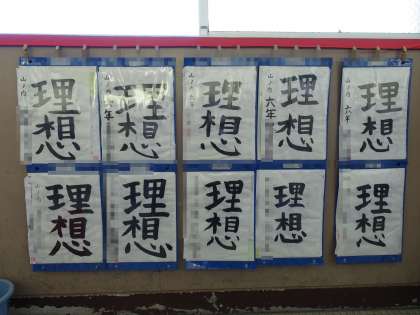 理想
山ノ内
理想
六年
理想
山ノ内
六年
理想
山ノ内
六年
理想
山ノ内
六年
理想
理想
理想
理想
理想